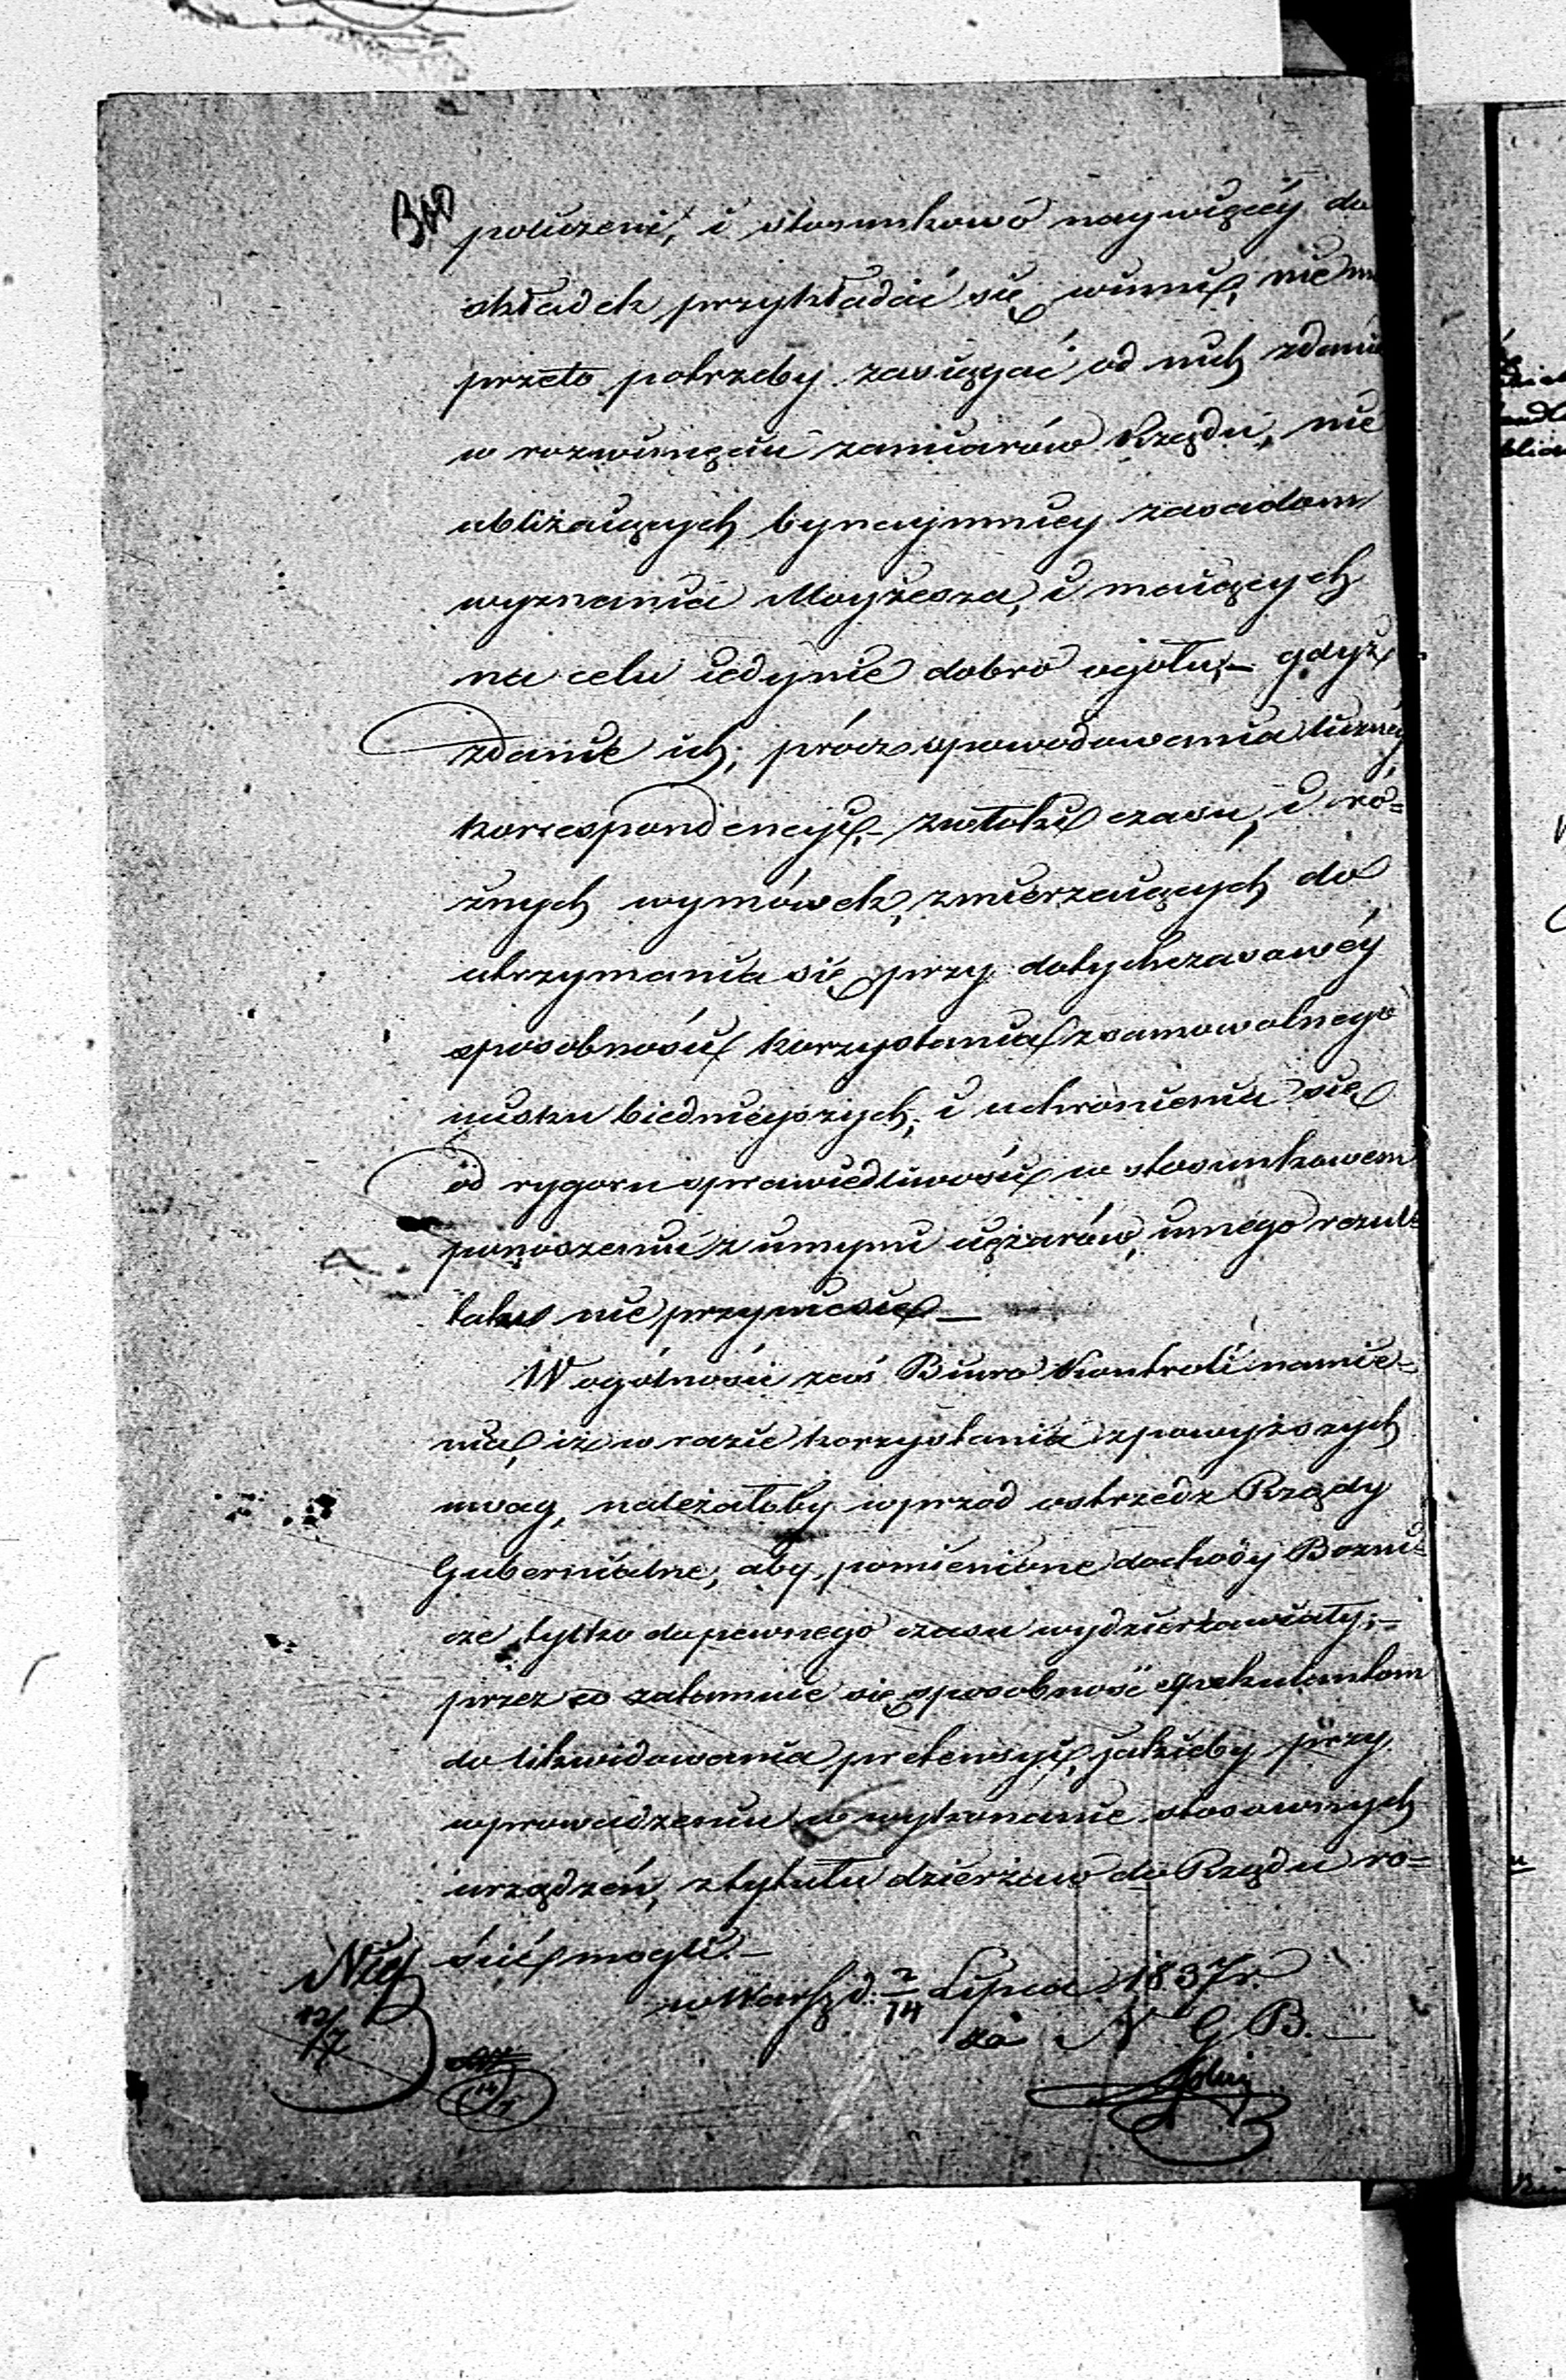 policzeni, i stosunkowo naywięcéy do
składek przykładać się winni, nie ma
przeto potrzeby zasięgać od nich zdania
w rozwinięciu zamiarów Rządu, nie
ubliżaiących bynaymniey zasadom
wyznania Moyżesza, i maiących
na celu iedynie dobro ogółu; — gdyż
zdanie ich, prócz spowodowania liczney
korrespondencyi, — zwłoki czasu, i ró=
żnych wymówek, zmierzaiących do
utrzymania się przy dotychczasowéy
sposobności korzystania z samowolnego
ucisku biednieyszych, i uchronienia się
od rygoru sprawiedliwości w stosunkowem
ponoszeniu z innymi ciężarów, innego rezul=
tatu nie przyniesie —
W ogólności zaś Biuro Kontroli namie=
nia, iż w razie korzystania z powyższych
uwag, należałoby wprzód ostrzedz Rządy
Gubernialne, aby pomienione dochody Bożni=
cze tylko do pewnego czasu wydzierżawiały; —
przez co zatamuie się sposobność spekulantom
do likwidowania pretensyi, jakieby przy
wprowadzeniu w wykonanie stosownych
urządzeń, z tytułu dzierżaw do Rządu ro=
ścić mogli. —
w Warsz d. 2/14 Lipca 1837 r.
za N G B. —
12/7
14/7